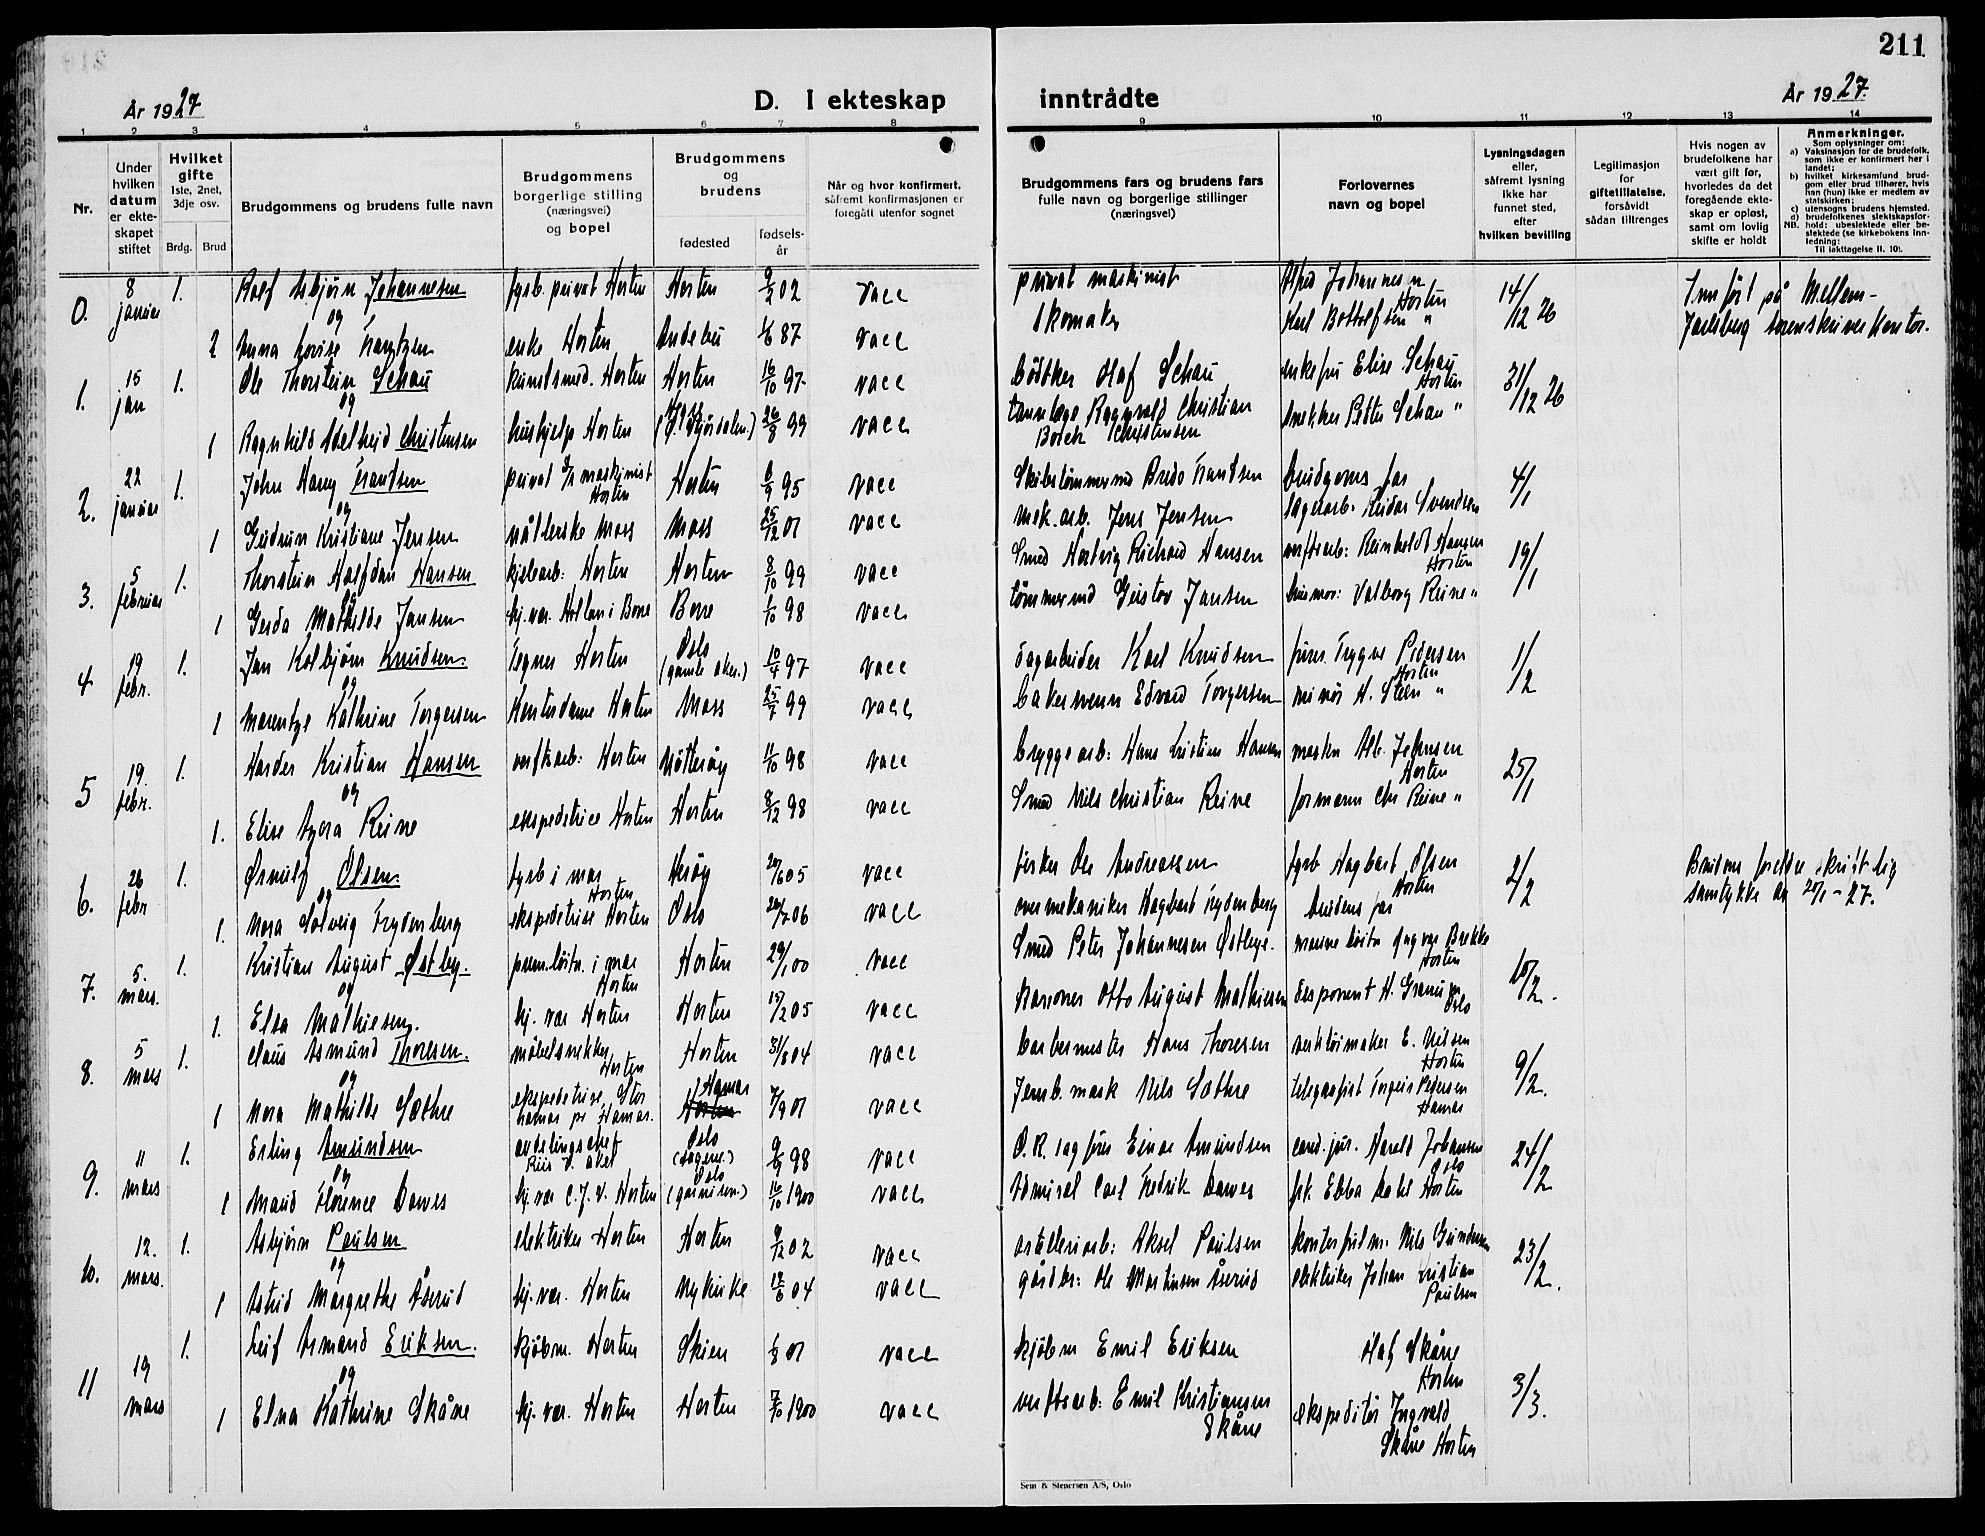 211
År 1927
D. I ekteskap inntrådte
År 1927.
1 2 3 4 5 6 7 8 9 10 11 12 13 14
Nr.
Under hvilken datum er ekteskapet stiftet
Hvilket gifte
1ste, 2net, 3dje osv.
Brdg. Brud
Brudgommens og brudens fulle navn
Brudgommens borgerlige stilling (næringsvei) og bopel
Brudgommens og brudens
fødested
fødselsår
Når og hvor konfirmert, såfremt konfirmasjonen er foregått utenfor sognet
Brudgommens fars og brudens fars fulle navn og borgerlige stillinger (næringsvei)
Forlovernes navn og bopel
Lysningsdagen eller, såfremt lysning ikke har funnet sted, efter hvilken bevilling
Legitimasjon for giftetillatelse, forsåvidt sådan tiltrenges
Hvis nogen av brudefolkene har vært gift før, hvorledes da det foregående ekteskap er opløst, samt om lovlig skifte er holdt
Anmerkninger.
Som oplysninger om:
a) Vaksinasjon for de brudefolk, som ikke er konfirmert her i landet;
b) hvilket kirkesamfund brudgom eller brud tilhører, hvis han (hun) ikke er medlem av statskirken;
c) utensogns brudens hjemsted.
d) brudefolkenes slektskapsforhold: ubeslektede eller beslektede (se kirkebokens Innledning:
NB. Til iakttagelse II. 10).
0. 8 januar 1. Rolf Asbjørn Johannesen fyrb. privat Horten Horten 9/2 02 vacc privat maskinist Alfred Johannesen Horten 14/12 26 Innført på Mellem-
og
2 Anna Lovise Frantzen enke Horten Andebu 1/6 87 vacc Skomaker Karl Bottolfsen " Jarlsberg sorenskriverkontor.
1. 15 jan 1. Ole Thorstein Schau kunstsmed. Horten Horten 16/10 97 vacc bødtker Olaf Schau enkefru Elise Schau Horten 31/12 26
og
1 Ragnhild Adelheid Christensen hushjelp Horten 26/8 99 vacc tannlæge Ragnvald Christian Borch Christensen snekker Petter Schau "
2. 22 januar 1. John Harry Frantsen privat maskinist Horten Horten 6/9 95 vacc Skibstømmermd Bredo Frantsen brudgoms far 4/1
og
1 Gudrun Kristiane Jensen nåtlerske Moss Moss 25/12 01 vacc mek. arb. Jens Jensen lagerarb. Reidar Svendsen
3. 5 februar 1. Thorstein Halfdan Hansen kjelearb: Horten Horten 8/10 99 vacc Smed Hartvig Richard Hansen verftsarb: Reinholdt Hansen Horten 19/1
og
1 Gerda Mathilde Jansen hj. vær. Hortan i Borre Borre 1/10 98 vacc tømmermd Gustov Jansen husmor: Valborg Reine "
4 19 febr. 1. Jan Kolbjørn Knudsen. Tegner Horten Oslo (gamle aker.) 10/4 97 vacc dagarbeider Karl Knudsen furer. Trygve Pedersen Horten 1/2
og
1 Marentze Kathrine Torgersen Kontordame Horten Moss 25/7 99 vacc bakersvenn Edvard Torgersen minør H. Steen "
5 19. febr. 1. Harder Kristian Hansen verftsarb: Horten Nøtterøy 11/10 98 vacc bryggearb: Hans Kristian Hansen maskin Alb. Johnsen Horten 25/1
og
1. Elise Agora Reine ekspeditrice Horten Horten 8/12 98 vacc Smed Nils Christian Reine formann Chr Reine "
6. 26 febr 1. Ørnulf Olsen. fyrb i mar Horten Herøy 20/6 05 vacc fisker Ole Andreassen fyrb Hagbart Olsen Horten 2/2 Brudens foreldre skriftlig
og
1. Nora Solveig Frydenberg ekspeditrise Horten Oslo 20/7 06 vacc overmekaniker Hagbart Frydenberg brudens far samtykke av 20/1 - 27.
7. 5. mars. 1. Kristian August Østby. prem.løitn. i mar Horten Horten 29/1 00 vacc Smed Peter Johannesen Østbye. marine løitn Ingvar Brekke Horten 10/2.
og
1. Elsa Mathiesen. hj. vær Horten Horten 15/2 05 vacc kanoner Otto August Mathiesen disponent H. Granum Oslo
8. 5 mars 1. Claus Asmund Thoresen. møbelsnekker Horten Horten 31/8 04 vacc barbermester Hans Thoresen verktøimaker E. Nilsen Horten 9/2.
og
1 Nora Mathilde Sæthre ekspeditrise, Storhamar pr Hamar. Hamar 7/9 01 vacc Jernb. mask Nils Sæthre telegrafist Torgeir Pedersen Hamar
9. 11 mars 1. Erling Amundsen avdelingschef Riis V. Aker Oslo 9/9 98 vacc O.R. sagfører Einar Amundsen cand. jur. Harald Johansen Oslo 24/2
og
1 Maud Florence Dawes hj. vær C.J.V. Horten Oslo (garnison.) 16/10 1900 vacc Admiral Carl Fredrik Dawes frk. Ebba Dahl Horten
10. 12. mars. 1. Asbjørn Paulsen elektriker Horten Horten 9/12 02 vacc artilleriarb: Aksel Paulsen kontorfuldm. Nils Gundersen 23/2.
og
1 Astrid Margrethe Åserud hj. vær. Horten Nykirke 12/6 04 vacc gårdbr: Ole Martinsen Åserud elektriker Johan Kristian Paulsen
11 19 mars 1. Leif Armand Eriksen. kjøbm. Horten Skien 1/8 01 vacc kjøbm Emil Eriksen Olaf Skåne Horten 3/3.
og
1 Elna Kathrine Skåne hj. vær. Horten Horten 7/10 1900 vacc verftsarb: Emil Kristiansen Skåne ekspeditør Ingvald Skåne Horten
Sem & Stenersen A/S, Oslo